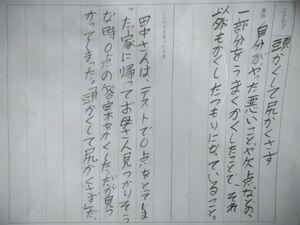 ことわざ
頭かくして尻かくさず
意味
自分がやった悪いことや欠点などの、
一部分をうまくかくしたことで、それ
以外もかくしたつもりになっていること。
田中さんは、テストで0点をとってしま
った。家に帰ってお母さん見つかりそう
な時、0点の答案をかくしたが、見つ
かってしまった。頭かくして尻かくさずだ。